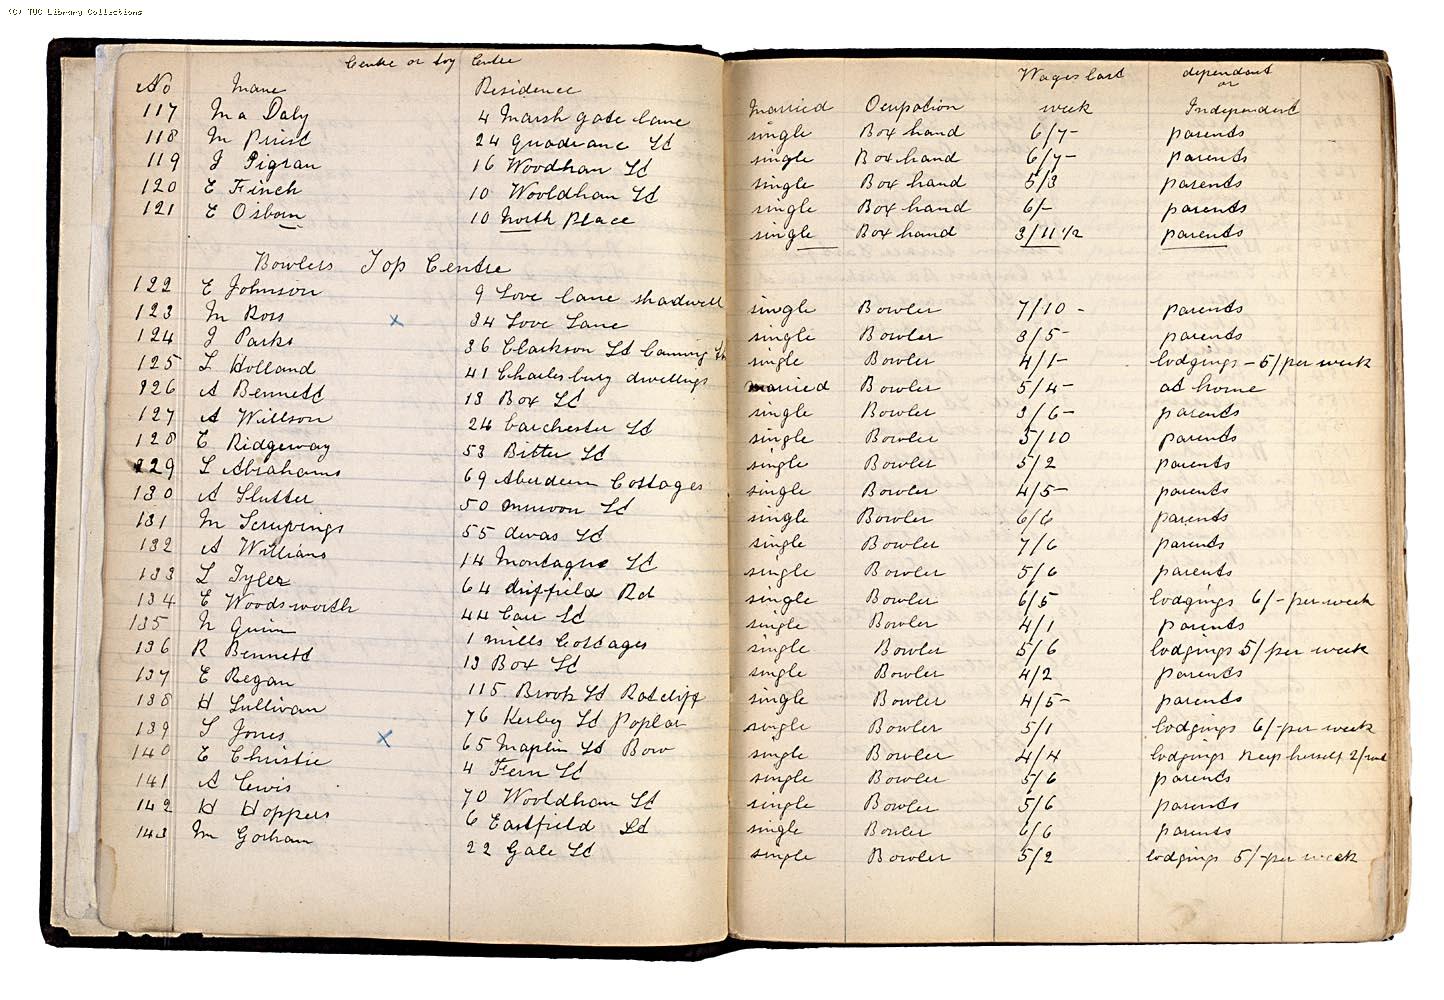 (C) TUC Library Collections
Centre or Centre
No Name Residence Married Ocupation Wages last week dependant or Independent
117 M a Daly 4 Marsh gate lane single Box hand 6/7- parents
118 M Priest 24 Quadrane St single Box hand 6/7- parents
119 J Pigran 16 Woodham St single Box hand 5/3 parents
120 E Finch 10 Wooldham St single Box hand 6/- parents
121 E Osborn 10 North Place single Box hand 3/11 1/2 parents
Bowlers Top Centre
122 E Johnson 9 Love lane shadwell single Bowler 7/10 - parents
123 M Ross x 34 Love Lane single Bowler 3/5- parents
124 J Parks 36 Clarkson St Canning single Bowler 4/1- lodgings - 5/ per week
125 L Holland 41 Charlesbury dwellings married Bowler 5/4- at home
126 A Bennett 13 Box St single Bowler 3/6- parents
127 A Willson 24 Carchester St single Bowler 5/10 parents
128 E Ridgeway 53 Bitter St single Bowler 5/2 parents
129 L Abrahams 69 Aberdeen Cottages single Bowler 4/5- parents
130 A Slutter 50 St single Bowler 6/6 parents
131 M Scrupings 55 devas St single Bowler 7/6 parents
132 A Williams 14 Montague St single Bowler 5/6 parents
133 L Tyler 64 driffield Rd single Bowler 6/5 lodgings 6/- per week
134 E Woodsworth 44 Carr St single Bowler 4/1 parents
135 N Quinn 1 mills Cottages single Bowler 5/6 lodgings 5/ per week
136 R Bennett 13 Box St single Bowler 4/2 parents
137 E Regan 115 Brook St Ratcliff single Bowler 4/5- parents
138 H Sullivan 76 Kerbey St Poplar single Bowler 5/1 lodgings 6/- per week
139 S Jones x 65 Maplin St Bow single Bowler 4/4 lodgings keep herself 2/
140 E Christie 4 Fern St single Bowler 5/6 parents
141 A Lewis 70 Wooldham St single Bowler 5/6 parents
142 H Hoppers 6 Eastfield St single Bowler 6/6 parents
143 M Gorham 22 Gale St single Bowler 5/2 lodgings 5/- per week